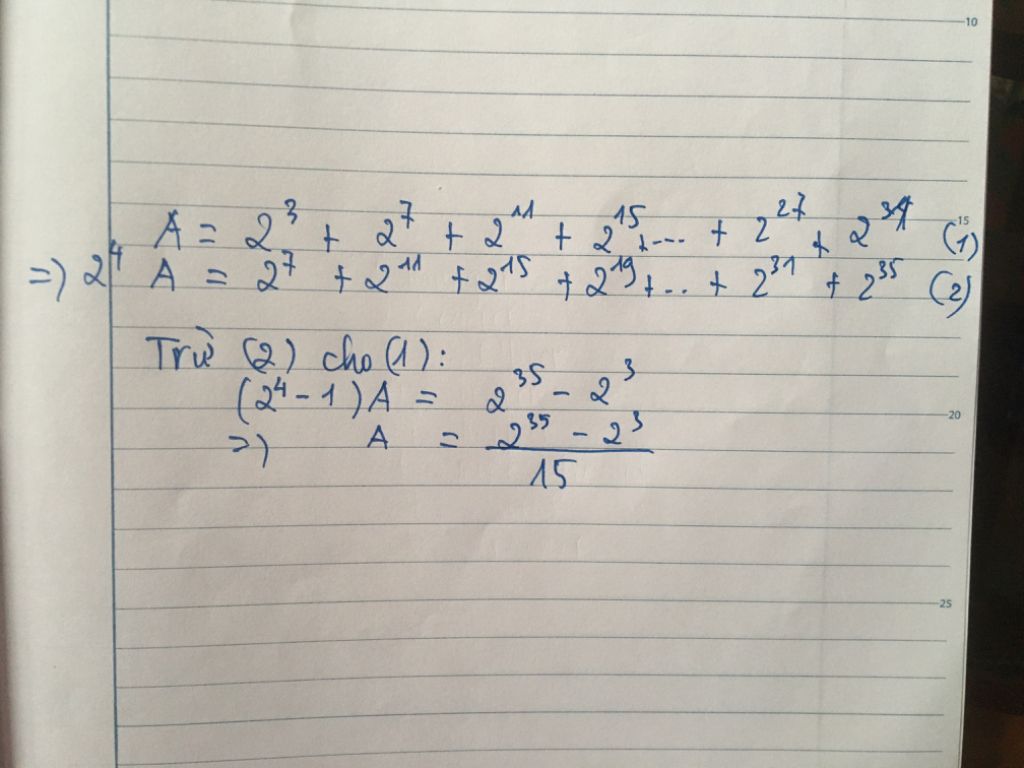 10
A = 2^3 + 2^7 + 2^11 + 2^15 + ... + 2^27 + 2^31 (1)
15
=) 2^4 A = 2^7 + 2^11 + 2^15 + 2^19 + .. + 2^31 + 2^35 (2)
Trừ (2) cho (1):
(2^4 - 1) A = 2^35 - 2^3
20
=) A = (2^35 - 2^3) / 15
25